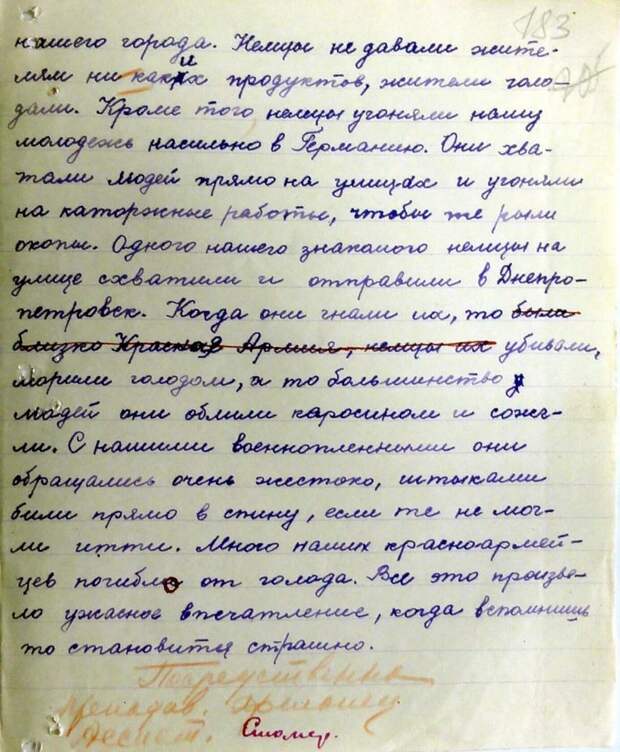 183
нашего города. Немцы не давали жите-
лям ни каких продуктов, жители голо-
дали. Кроме того немцы угоняли нашу
молодежь насильно в Германию. Они хва-
тали людей прямо на улицах и угоняли
на каторжные работы, чтобы те рыли
окопы. Одного нашего знакомого немцы на
улице схватили и отправили в Днепро-
петровск. Когда они гнали их, то были
близко Красная Армия, немцы их убивали,
морили голодом, а то большинство
людей они облили каросином и сожг-
ли. С нашими военнопленными они
обращались очень жестоко, штыками
били прямо в спину, если те не мог-
ли итти. Много наших красноармей-
цев погибло от голода. Все это произве-
ло ужасное впечатление, когда вспомнишь
то становится страшно.
Посредственно